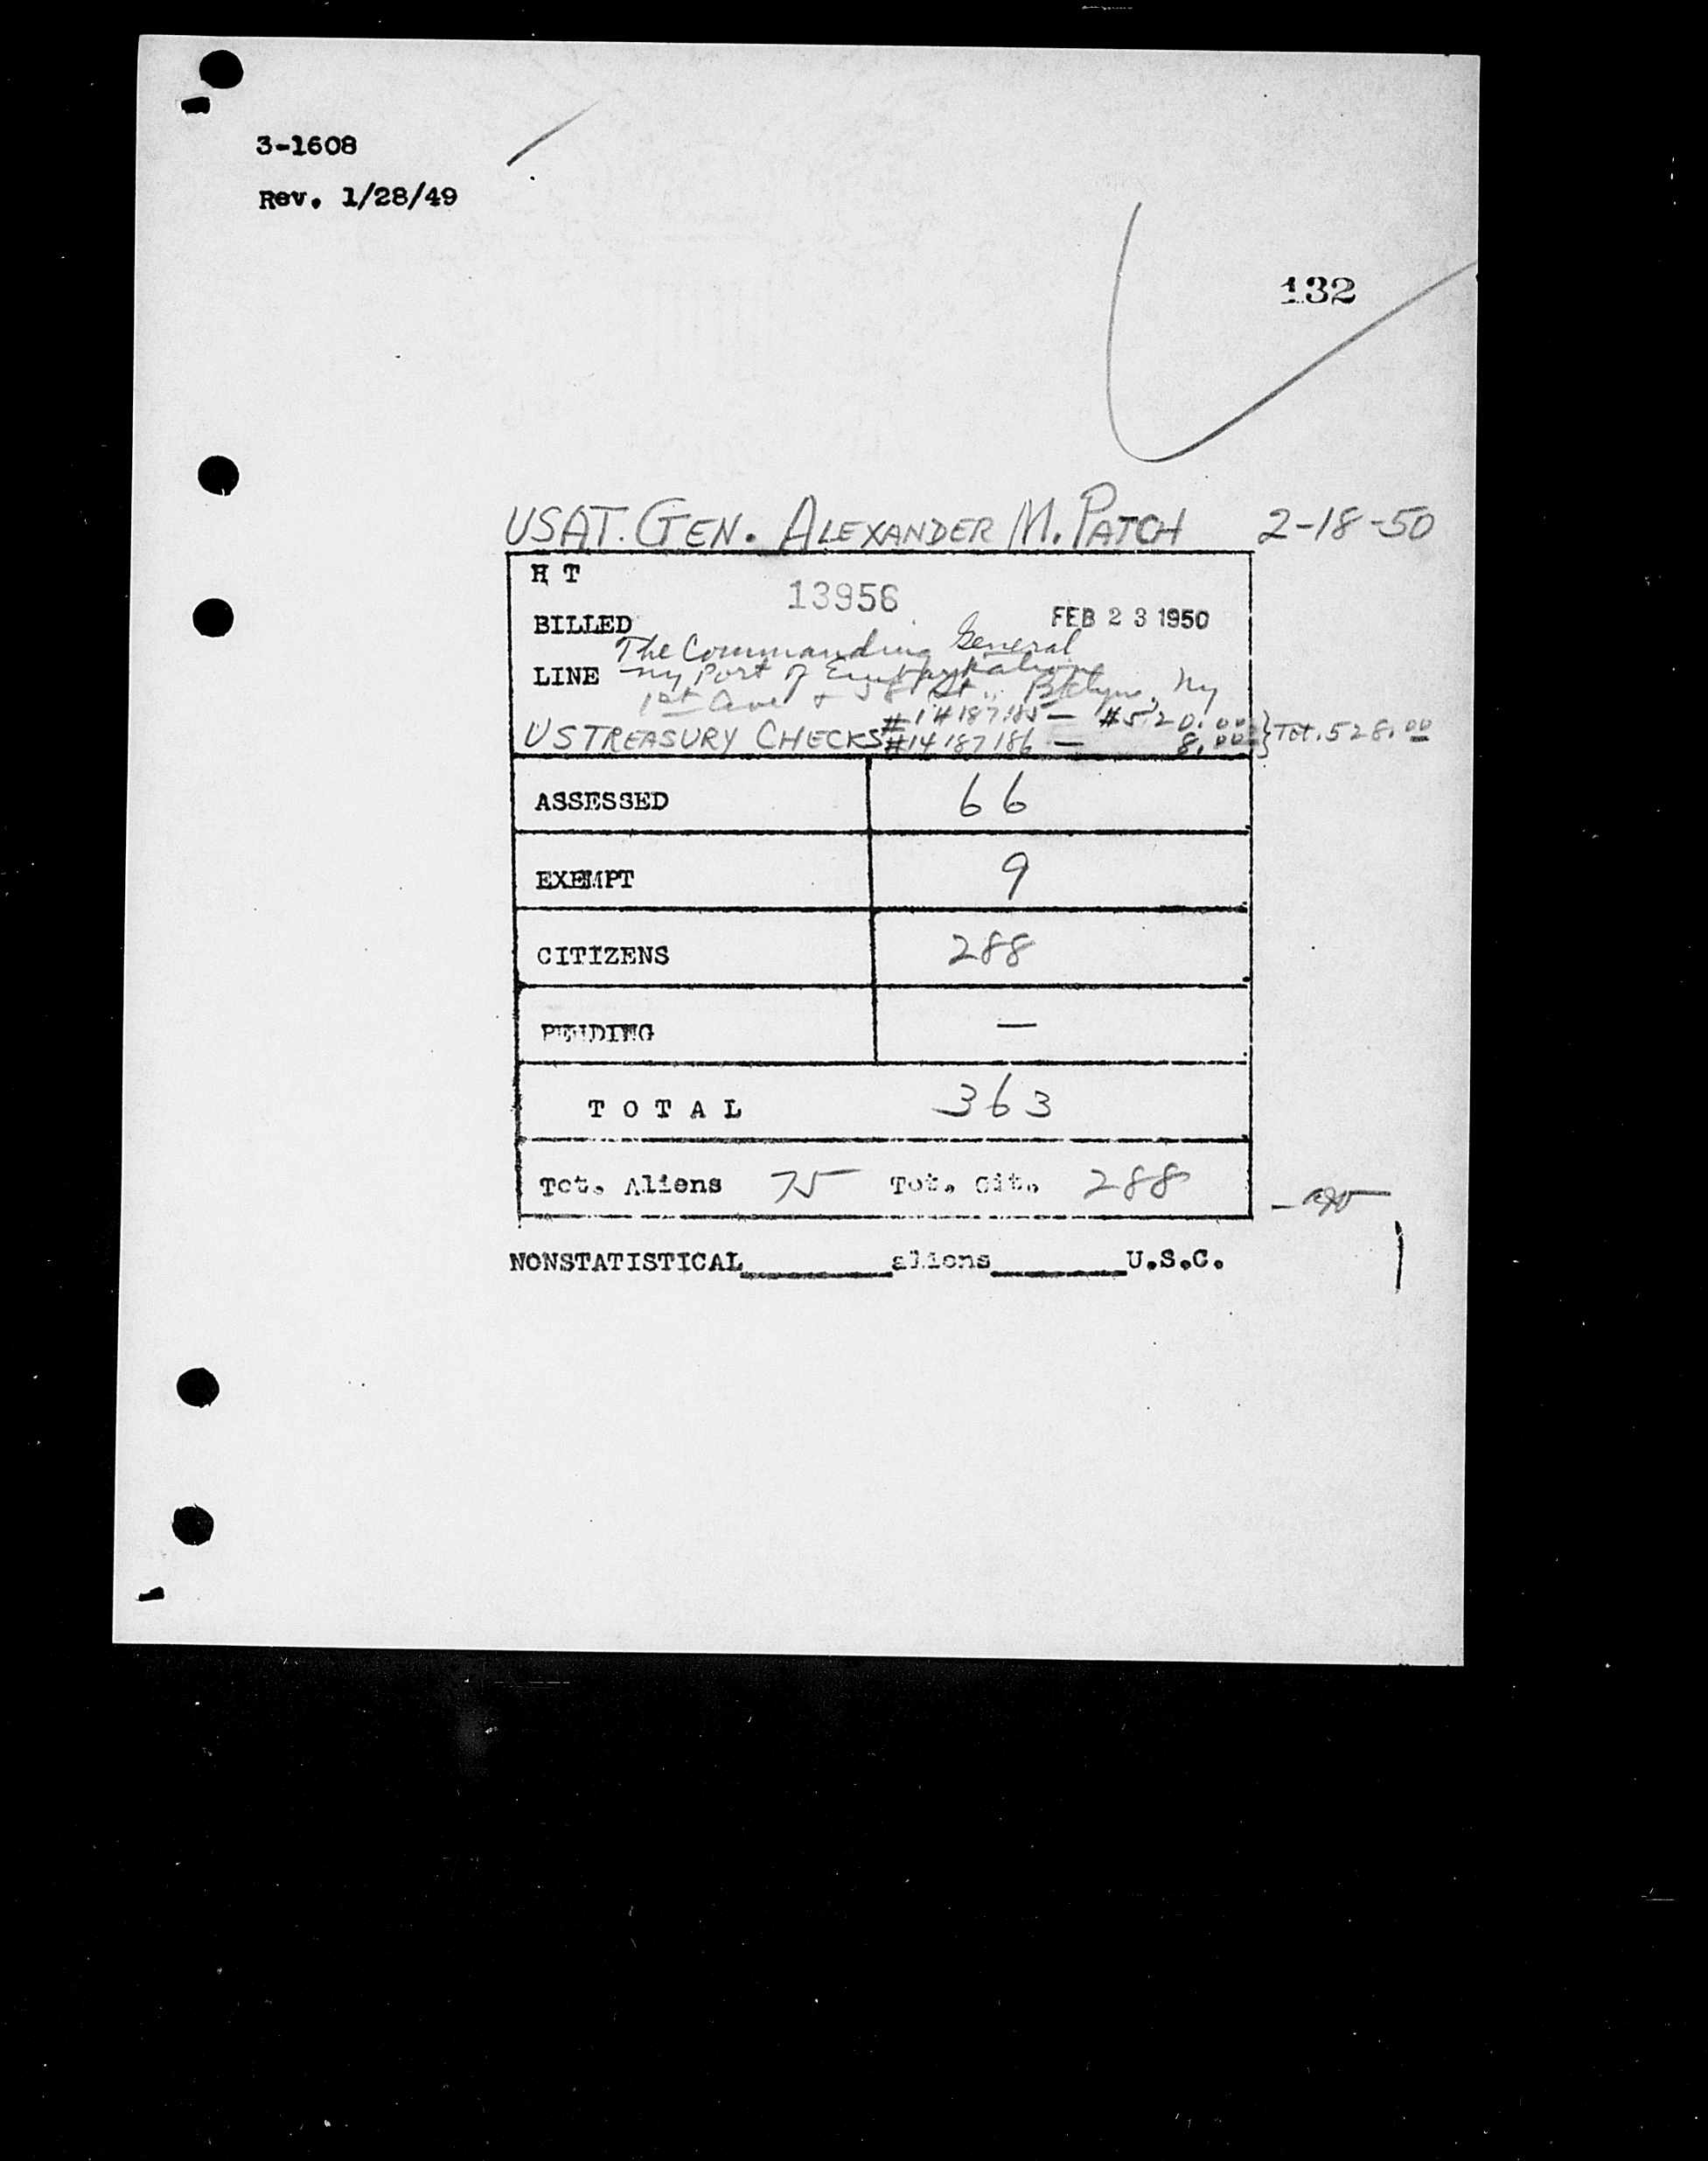 3-1608
Rev. 1/28/49
132
USAT. GEN. ALEXANDER M. PATCH 2-18-50
H T
13956
BILLED FEB 23 1950
The Commanding General
LINE ny Port of Embarkation
1st Ave + 58 St., Bklyn, Ny
#14187185 — $520.00
US TREASURY CHECKS #14187186 — 8.00 } Tot. 528.00
ASSESSED 66
EXEMPT 9
CITIZENS 288
PENDING —
TOTAL 363
Tot. Aliens 75 Tot. Cit. 288
NONSTATISTICAL________aliens________U.S.C.